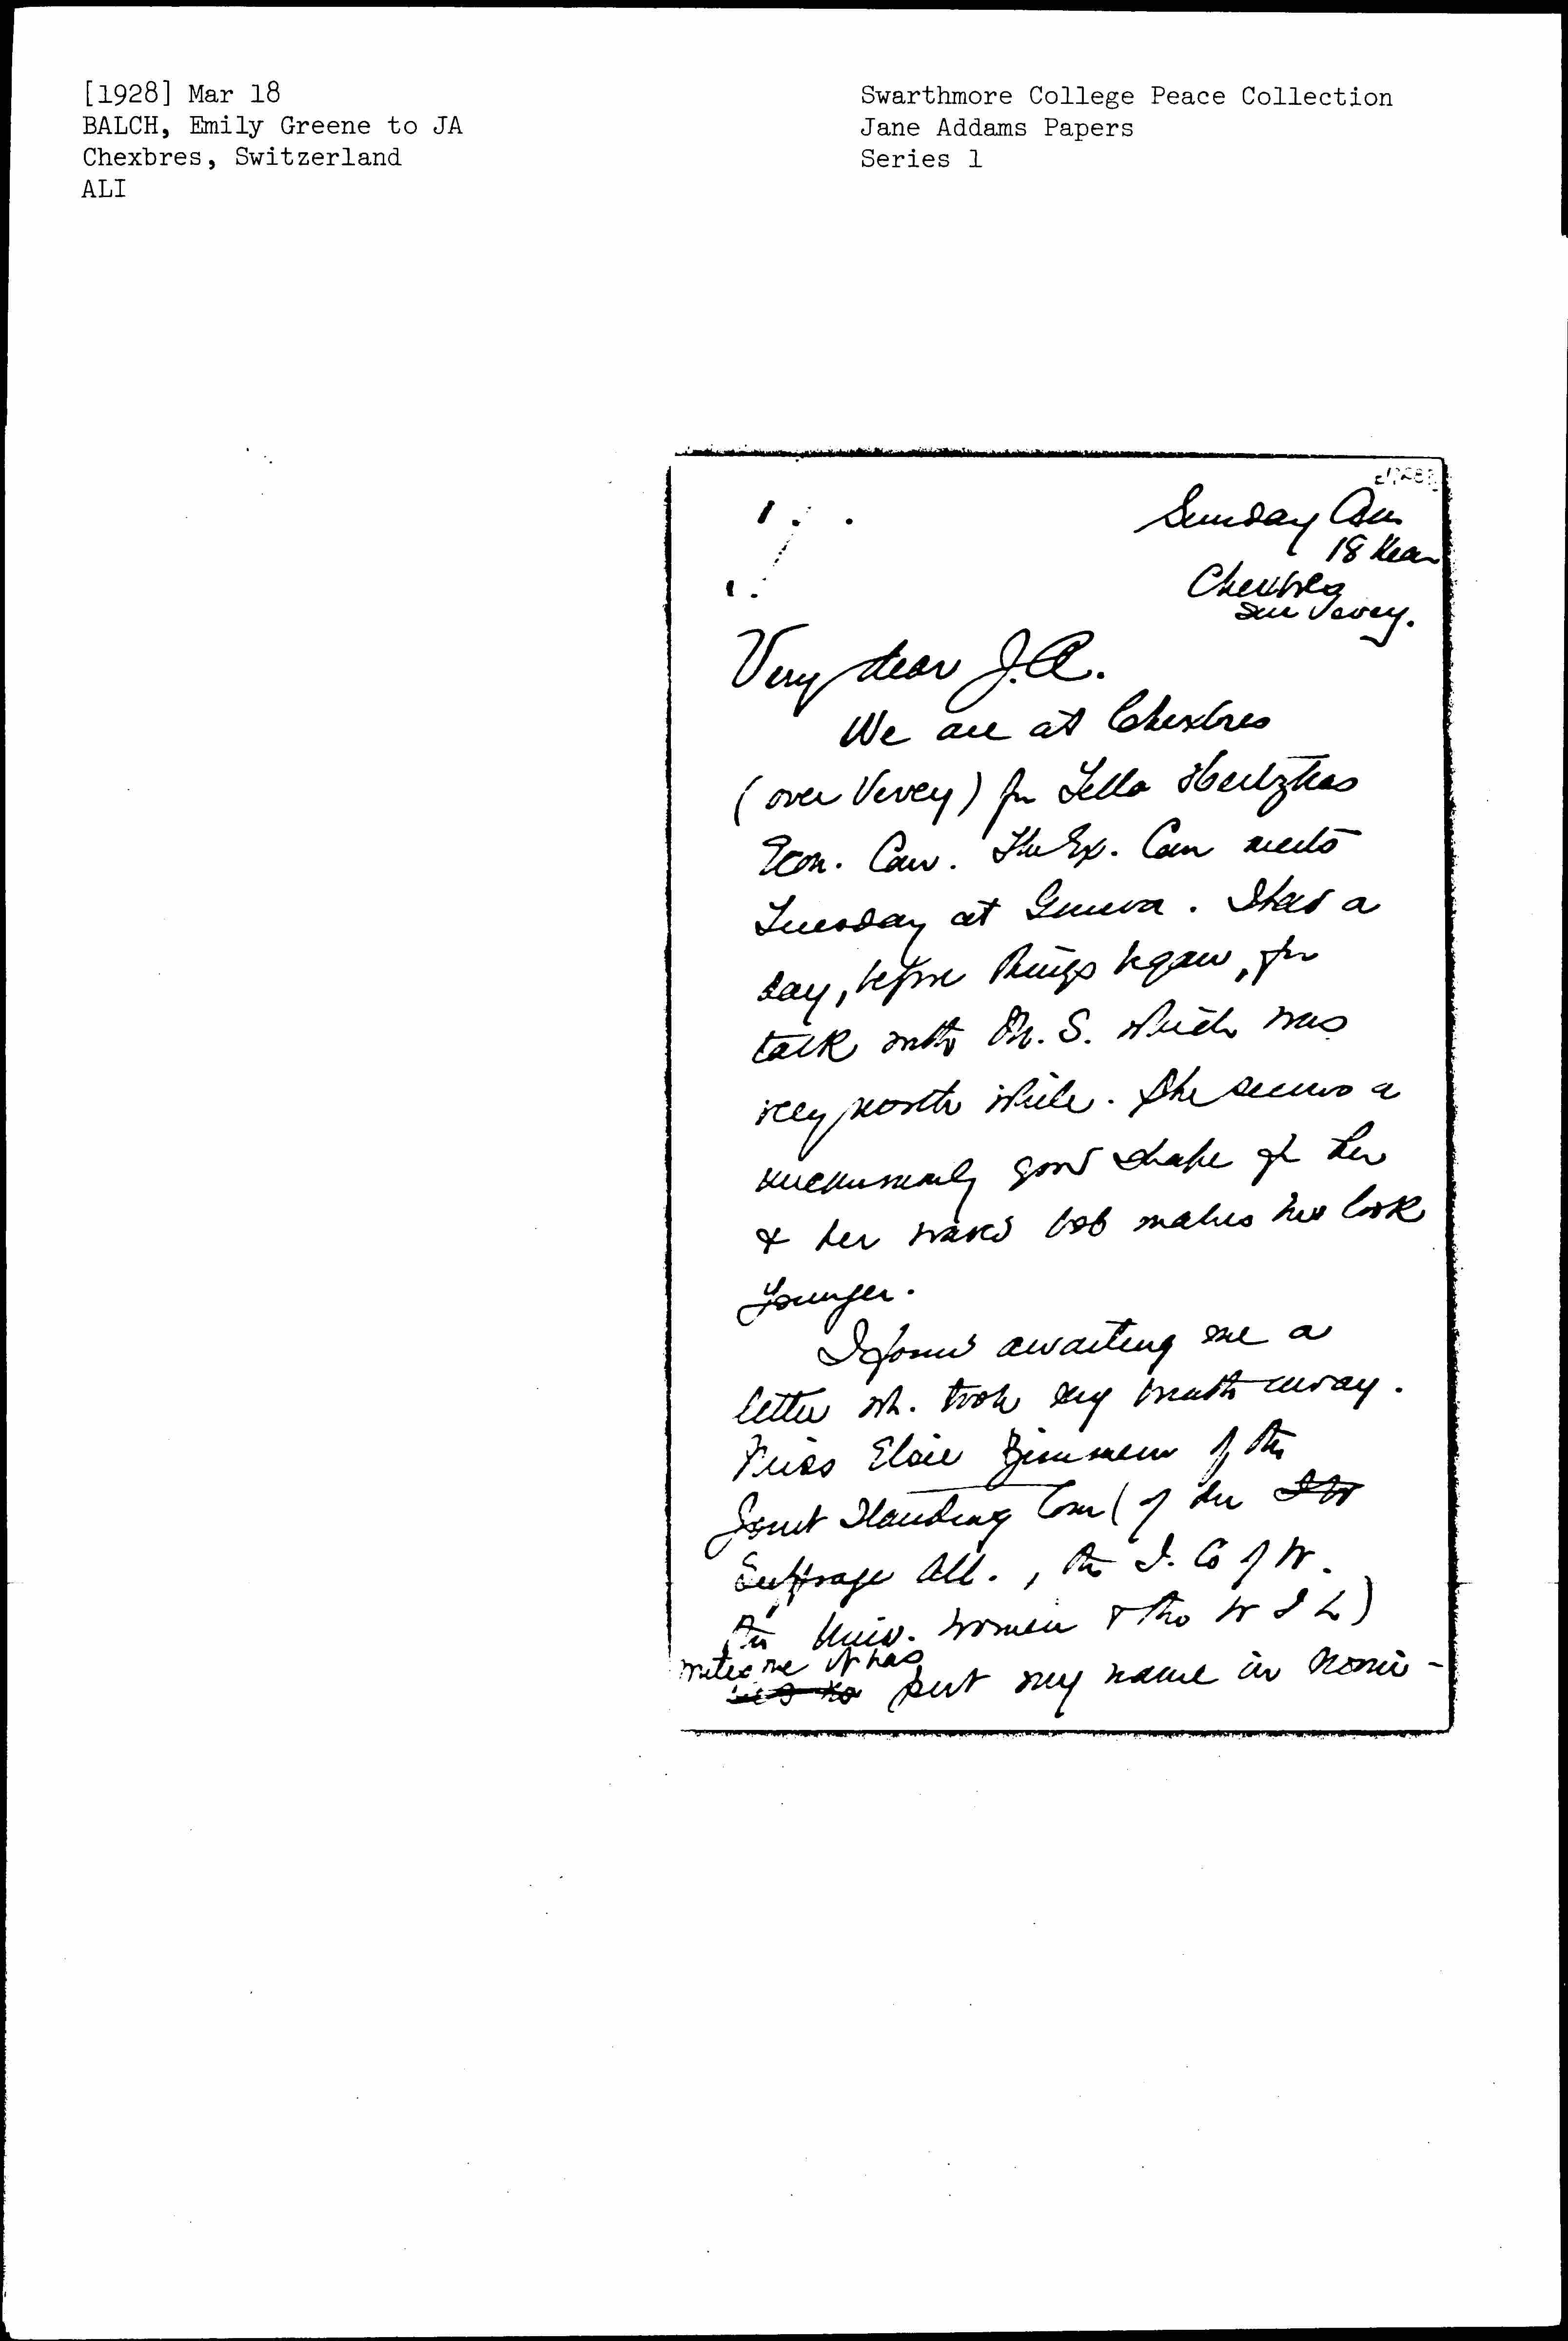 [1928] Mar 18
BALCH, Emily Greene to JA
Chexbres, Switzerland
ALI
Swarthmore College Peace Collection
Jane Addams Papers
Series 1
Sunday
18 Mar
Chexbres
sur Vevey.
Very dear J.A.
We are at Chexbres
(over Vevey) for Yella Hertzkas
Econ. Com. The Ex. Com meets
Tuesday at Geneva. I had a
day, before things began, for
talk with M. S. which was
very worth while. She seems a
uncommonly good shape for her
& her waved bob makes her look
younger.
I found awaiting me a
letter wh. took my breath away.
Miss Elsie Zimmern of the
Joint Standing Com (of the
Suffrage All., the I. Co of W.
the Univ. women & the W I L)
writes me it has
put my name in nomi-